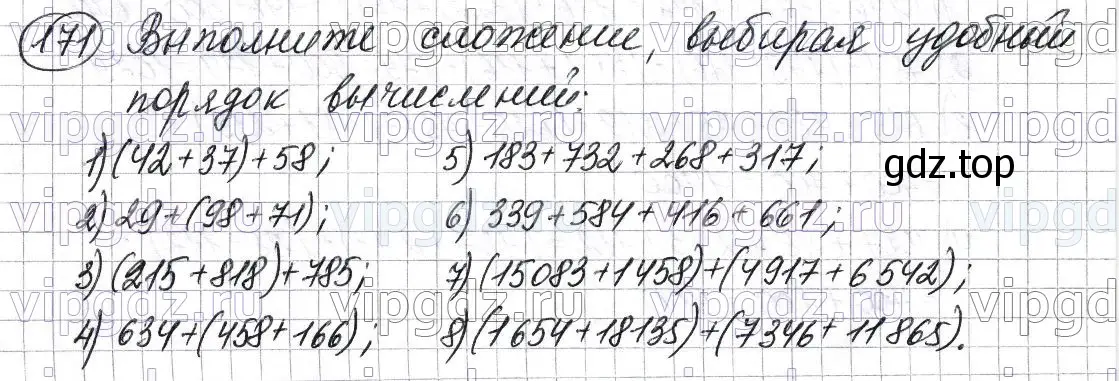 171 Выполните сложение, выбирая удобный
порядок вычислений:
1) (42+37)+58; 5) 183+732+268+317;
gdz.top
2) 29+(98+71); 6) 339+584+416+661;
3) (215+818)+785; 7) (15083+1458)+(4917+6542);
4) 634+(458+166); 8) (1654+18135)+(7346+11865).
vipgdz.ru